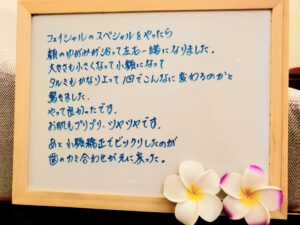 フェイシャルのスペシャルをやったら
顔のゆがみが治って左右一緒になりました。
大きさも小さくなって小顔になって
タルミもかなり上って1回でこんなに変わるのかと
驚きました。
やって良かったです。
お肌もプリプリ、ツヤツヤです。
あと小顔矯正でビックリしたのが
歯のカミ合わせが元に戻った。